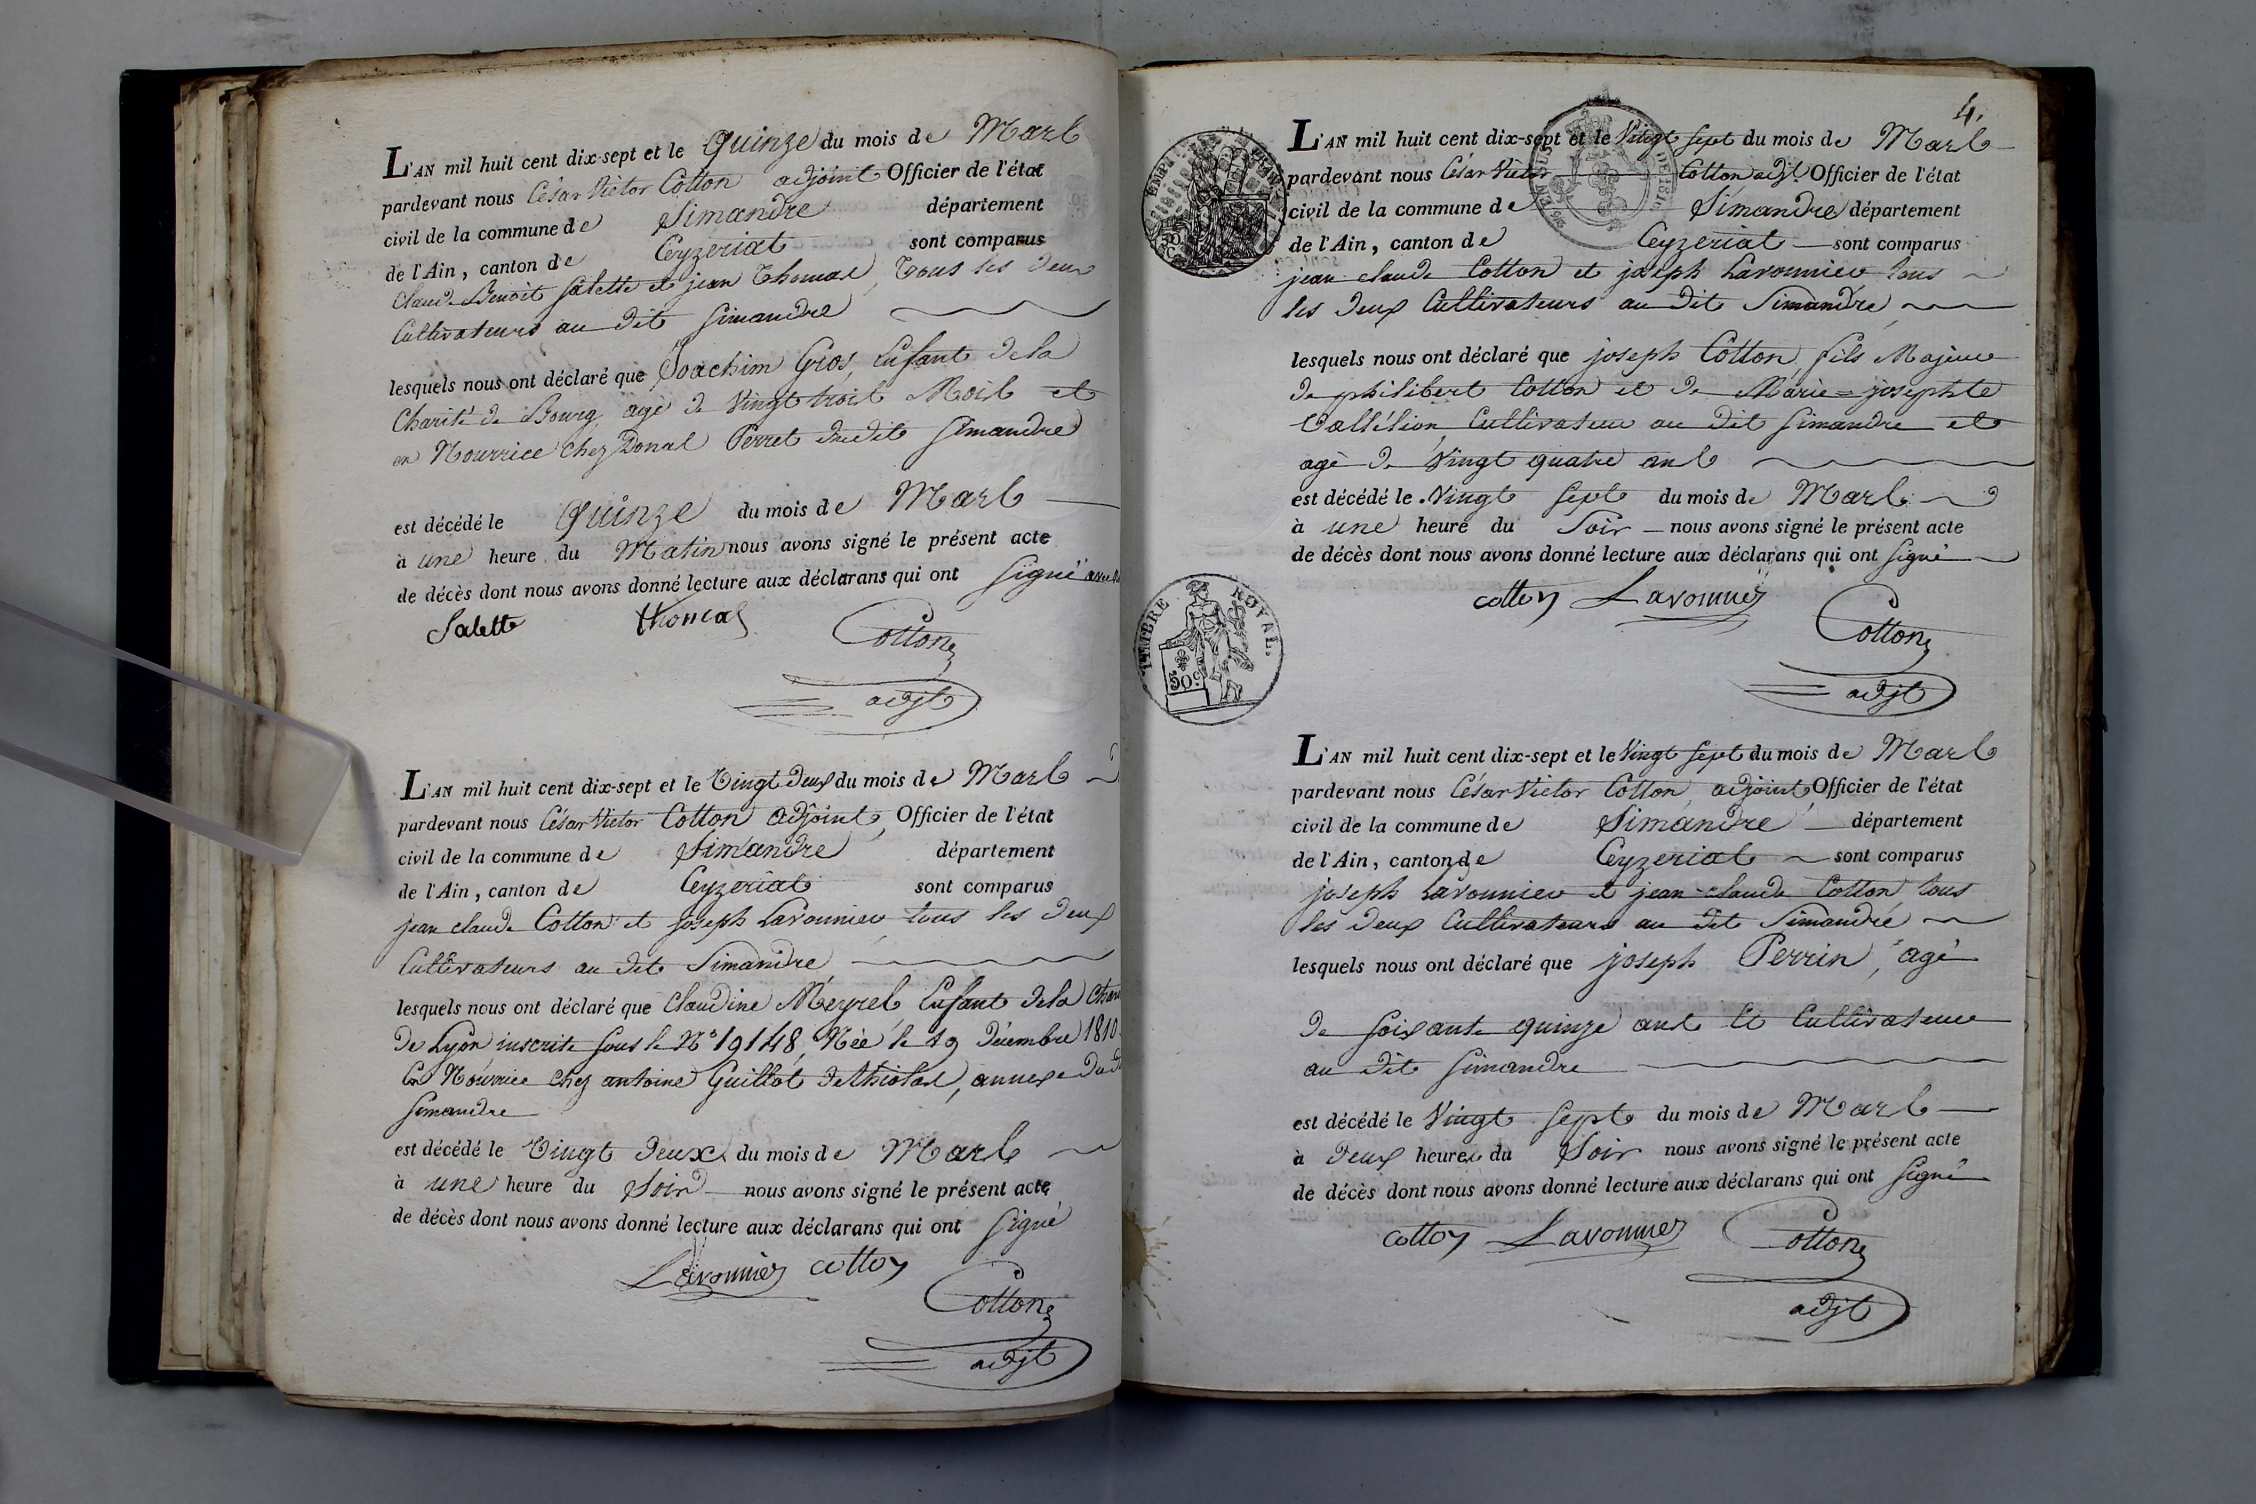 L'AN mil huit cent dix-sept et le Quinze du mois de Mars
pardevant nous César Victor Cotton adjoint Officier de l'état
civil de la commune de Simandre département
de l'Ain, canton de Ceyzeriat sont comparus
Claude Benoit Salette et jean Thomas, Tous les deux
Cultivateurs au dit Simandre
lesquels nous ont déclaré que Joachim Gros, Enfant dela
Charité de Bourg, agé de Vingt trois Mois et
en Nourrice chez Donat Perret dudit Simandre
est décédé le Quinze du mois de Mars
à une heure du Matin nous avons signé le présent acte
de décès dont nous avons donné lecture aux déclarans qui ont Signé avec
Salette thomas Cotton
adjt
L'AN mil huit cent dix-sept et le Vingt deux du mois de Mars
pardevant nous César Victor Cotton adjoint, Officier de l'état
civil de la commune de Simandre département
de l'Ain, canton de Ceyzeriat sont comparus
jean claude Cotton et joseph Lavonnier, tous les deux
Cultivateurs au dit Simandre
lesquels nous ont déclaré que Claudine Meyret, Enfant dela
De Lyon inscrite sous le N° 19148, Née le 19 Décembre 1810
En Nourrice chez antoine Guillot, annexe
Simandre
est décédé le Vingt deux du mois de Mars
à une heure du Soir nous avons signé le présent acte
de décès dont nous avons donné lecture aux déclarans qui ont Signé
Lavonnier cotton
Cotton
adjt
4.
L'AN mil huit cent dix-sept et le Vingt sept du mois de Mars
pardevant nous César Victor Cotton adjt. Officier de l'état
civil de la commune de Simandre département
de l'Ain, canton de Ceyzeriat sont comparus
jean claude Cotton et joseph Lavonnier tous
les deux Cultivateurs au dit Simandre
lesquels nous ont déclaré que joseph Cotton, fils Majeur
de philibert Cotton et de Marie=josephte
Cultivateur au dit Simandre et
agé de Vingt quatre ans
est décédé le Vingt sept du mois de Mars
à une heure du Soir nous avons signé le présent acte
de décès dont nous avons donné lecture aux déclarans qui ont Signé
cotton Lavonnier
Cotton
adjt
TIMBRE ROYAL.
50c
L'AN mil huit cent dix-sept et le Vingt sept du mois de Mars
pardevant nous César Victor Cotton, adjoint, Officier de l'état
civil de la commune de Simandre département
de l'Ain, canton de Ceyzeriat sont comparus
joseph Lavonnier et jean-claude Cotton tous
les deux Cultivateurs au dit Simandre
lesquels nous ont déclaré que joseph Perrin, agé
de soixante quinze ans et Cultivateur
au dit Simandre
est décédé le Vingt sept du mois de Mars
à deux heures du Soir nous avons signé le présent acte
de décès dont nous avons donné lecture aux déclarans qui ont Signé
cotton Lavonnier Cotton
adjt